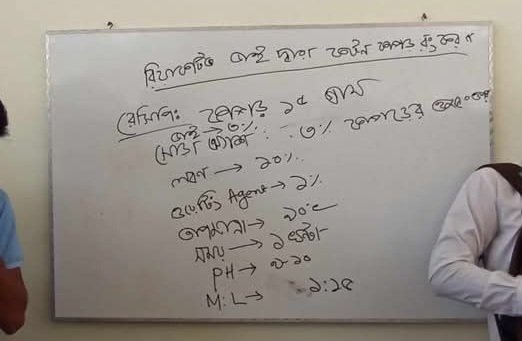 রিয়াকটিভ ডাই দ্বারা কটন কাপড় রং করন
রেসিপিঃ কাপড় ১৫ গ্রাম
ডাই → ৩%
সোডা অ্যাশ : ৩% কাপড়ের ওজনের
লবন → ১০%
ওয়েটিং Agent → ১%
তাপমাত্রা → ৯০°c
সময় → ১ ঘন্টা
PH → ৯-১০
M:L → ১:১৫